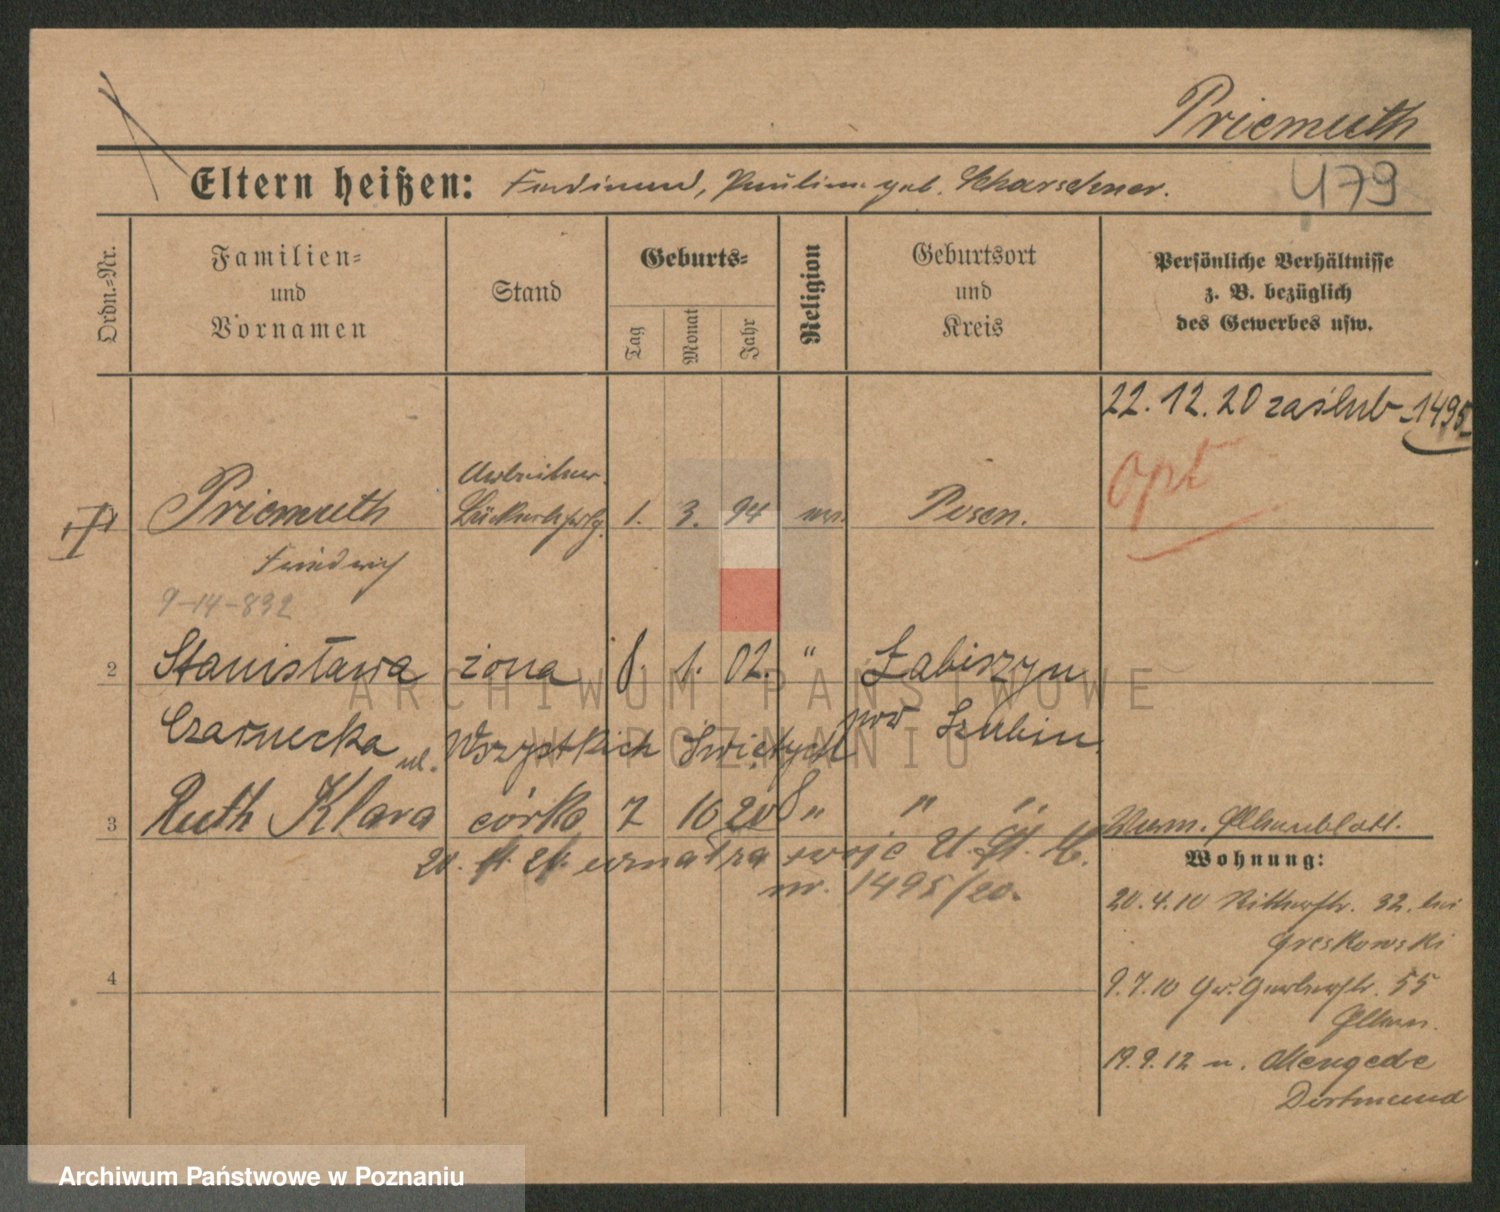 Priemuth
Eltern heißen: Ferdinand, Paulin. geb. Scharschner.
479
Ordn.-Nr.
Familien-
und
Vornamen
Stand
Geburts-
Tag
Monat
Jahr
Religion
Geburtsort
und
Kreis
Persönliche Verhältnisse
z. B. bezüglich
des Gewerbes usw.
22.12.20 zaślub 1495
opt
Priemuth
1. 3. 94
Posen.
Friedrich
9-14-892
2 Stanisława żona 8. 1. 02. " Łabiszyn
Czarnecka ul. Wszystkich Świętych pow Szubin
3 Ruth Klara córka 7 10 20 " " "
nr. 1495/20.
Wohnung:
20.4.10 Ritterstr. 32. bei
Greskowski
4
9.7.10 Gr. Gerberstr. 55
Eltern.
19.9.12 n. Mengede
Dortmund
ARCHIWUM PAŃSTWOWE
W POZNANIU
Archiwum Państwowe w Poznaniu